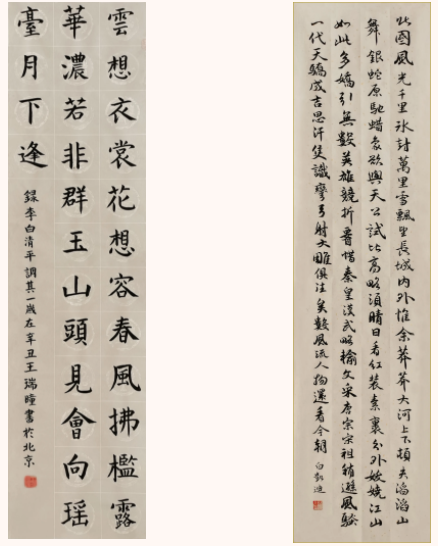 雲想衣裳花想容春風拂檻露
華濃若非群玉山頭見會向瑤
臺月下逢
錄李白清平調其一歲在辛丑王瑞瞳書於北京
北國風光千里冰封萬里雪飄望長城內外惟余莽莽大河上下頓失滔滔山
舞銀蛇原馳蠟象欲與天公試比高須晴日看紅裝素裹分外妖嬈江山
如此多嬌引無數英雄競折腰惜秦皇漢武略輸文采唐宗宋祖稍遜風騷
一代天驕成吉思汗隻識彎弓射大雕俱往矣數風流人物還看今朝